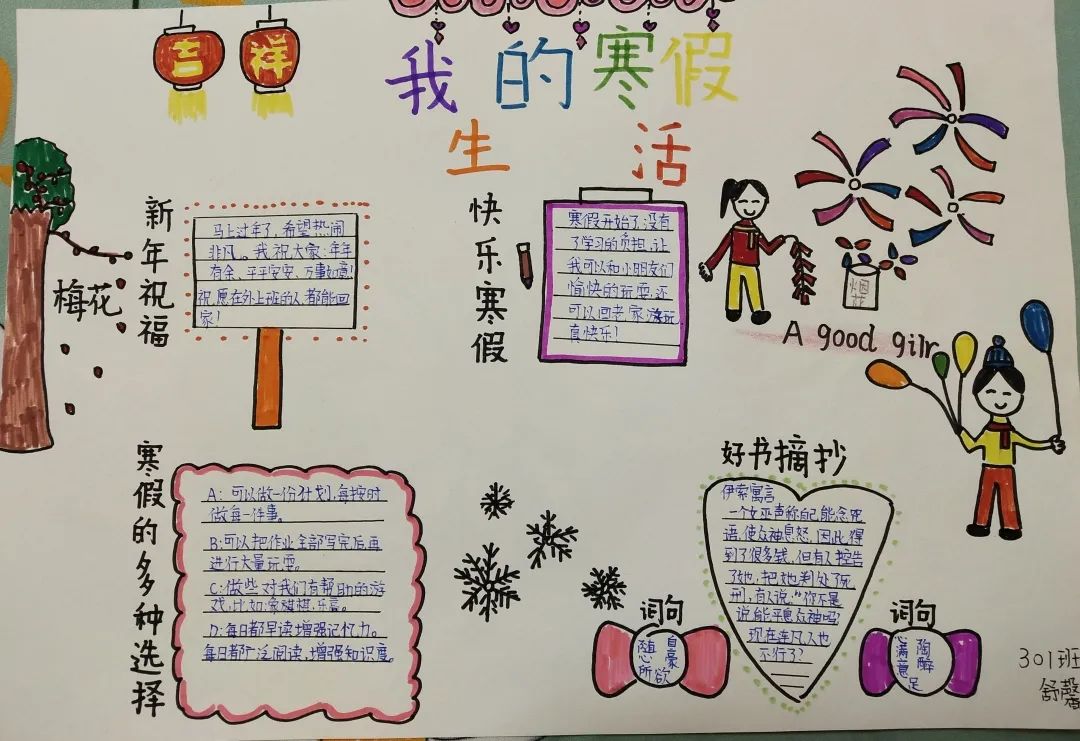 吉祥
我的寒假
生活
新年祝福
马上过年了，希望热闹
非凡。我祝大家：年年
有余、平平安安、万事如意！
祝愿在外上班的人都能回
家！
梅花
快乐寒假
寒假开始了，没有
了学习的负担，让
我可以和小朋友们
愉快的玩耍，还
可以回老家游玩，
真快乐！
烟花
A good gilr
寒假的多种选择
A：可以做一份计划，每按时
做每一件事。
B：可以把作业全部写完后再
进行大量玩耍。
C：做些对我们有帮助的游
戏，比如：象棋、乐高。
D：每日都早读，增强记忆力。
每日都广泛阅读，增强知识度。
好书摘抄
伊索寓言
一个女巫声称自己能念咒
语，使众神息怒，因此，得
到了很多钱，但有人控告
了她，把她判处了死
刑，有人说："你不是
说能平息众神吗，
现在连凡人也
不行了？
词句
随心所欲
自豪
词句
心满意足
陶醉
301班
舒馨